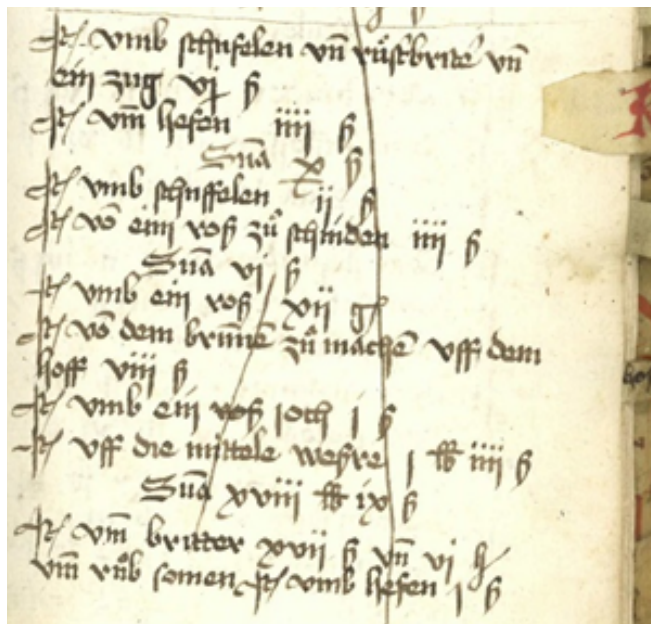 It̃ vmb schufelen vñ rüstbrite vñ
ein zug vj ß
It̃ vm̃ hefen iiij ß
Sūa x ß
It̃ vmb schuffelen ij ß
It̃ vō eim roß zů schinden iiij ß
Sūa vj ß
It̃ vmb ein roß xij g
It̃ vō dem brun̄ē zů machē vff dem
hoff viij ß
It̃ vmb ein roß joch j ß
It̃ vff die mittele weyre j lb iiij ß
Sūa xviij lb ix ß
It̃ vm̃ britter xvij ß vñ vj h
vm̃ růb somen It̃ vmb hefen j ß